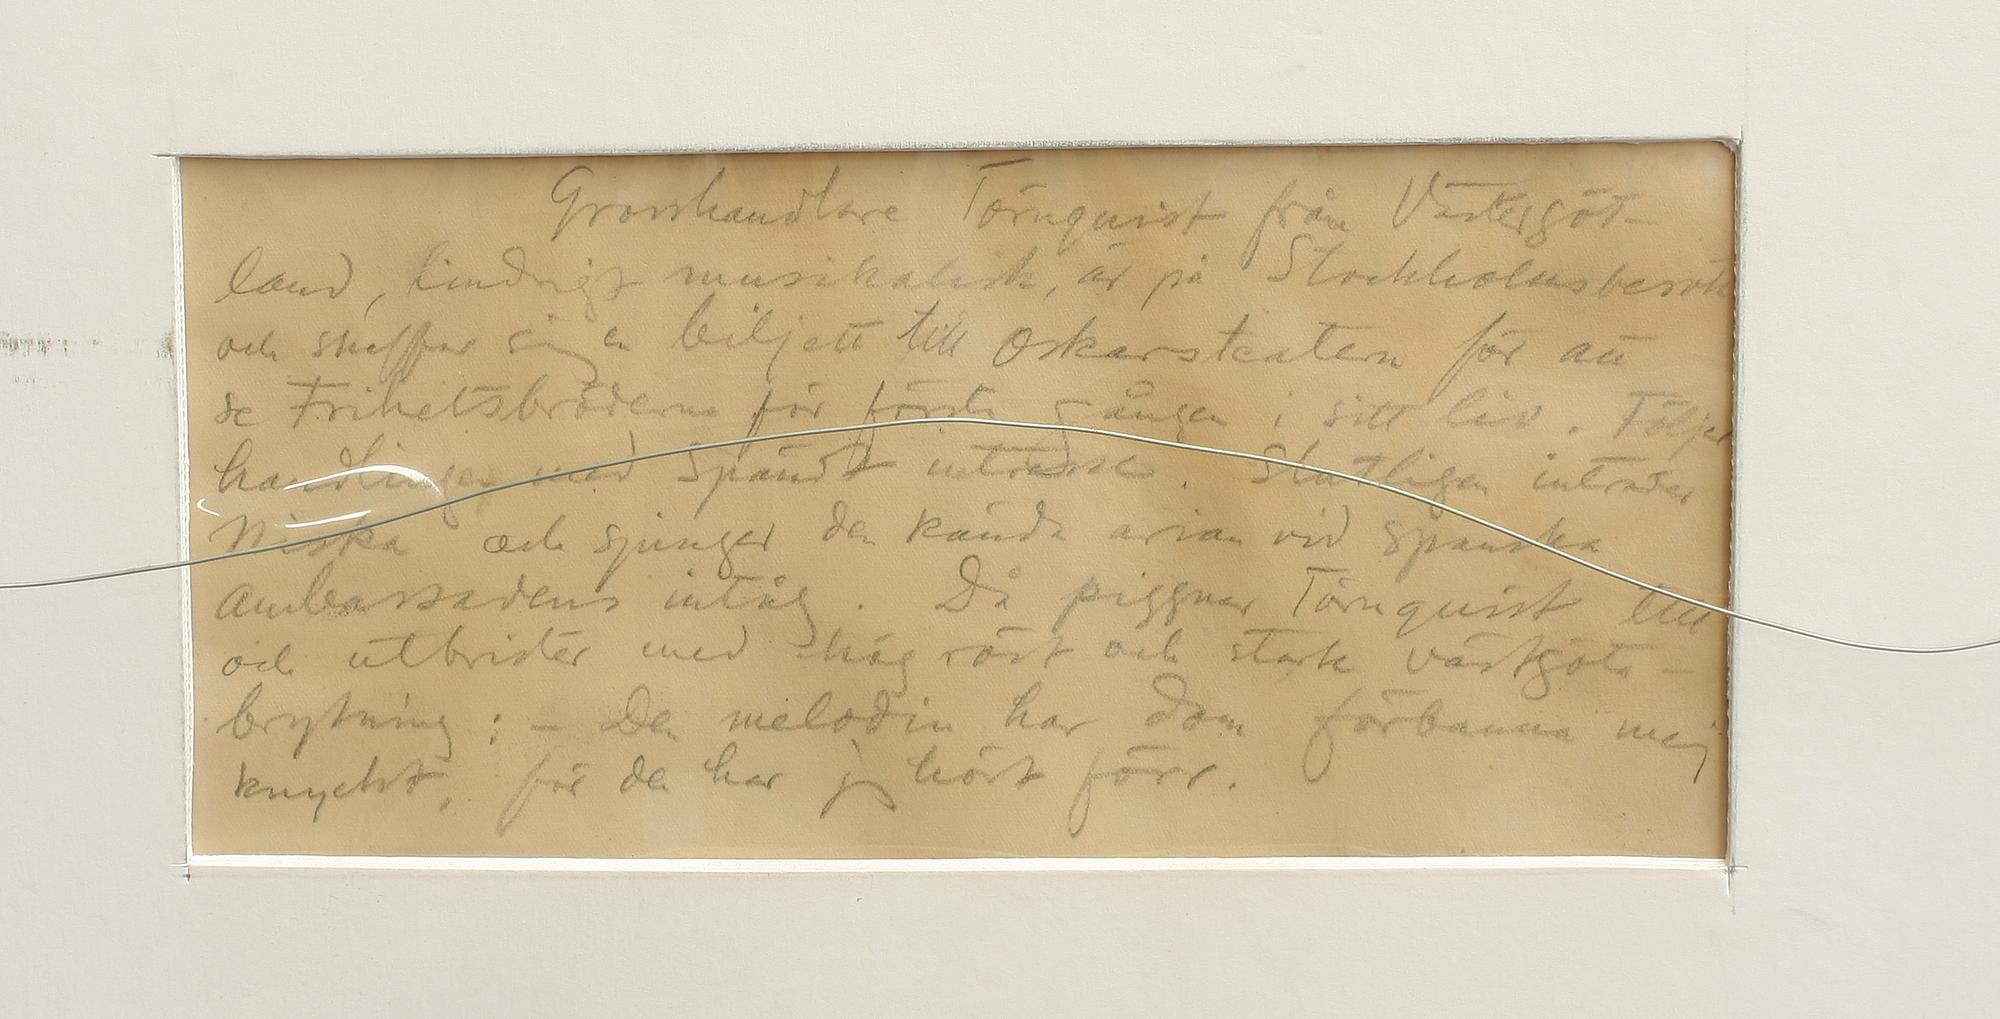 Grosshandlare Törnquist från Västergöt-
land, lindrigt musikalisk, är på Stockholmsbesök
och skaffar sig en biljett till Oskarsteatern för att
se Frihetsbröderna för första gången i sitt liv. Följer
handlingen med spändt intresse. Slutligen inträder
Niska och sjunger den kända arian vid spanska
ambassadens intåg. Då piggnar Törnquist till
och utbrister med hög röst och stark västgöta-
brytning: - De melodin har dom förbanna mej
knyckt, för de har jg hört förr.